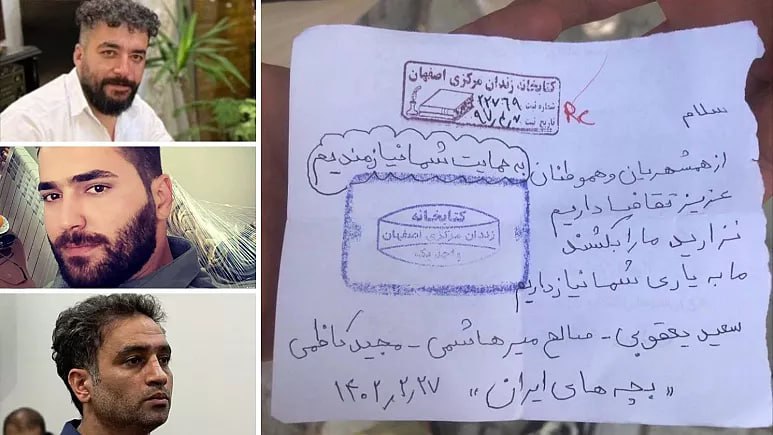 کتابخانه زندان مرکزی اصفهان
شماره ثبت ۲۲۷۶۹
تاریخ ثبت
RC
سلام
از همشهریان و هموطنان به حمایت شما نیازمندیم
عزیز تقاضا داریم
نزارید ما را بکشند
ما به یاری شما نیاز داریم
کتابخانه
زندان مرکزی اصفهان
سعید یعقوبی - صالح میرهاشمی - مجید کاظمی
«بچه های ایران» ۱۴۰۲٫۲٫۲۷